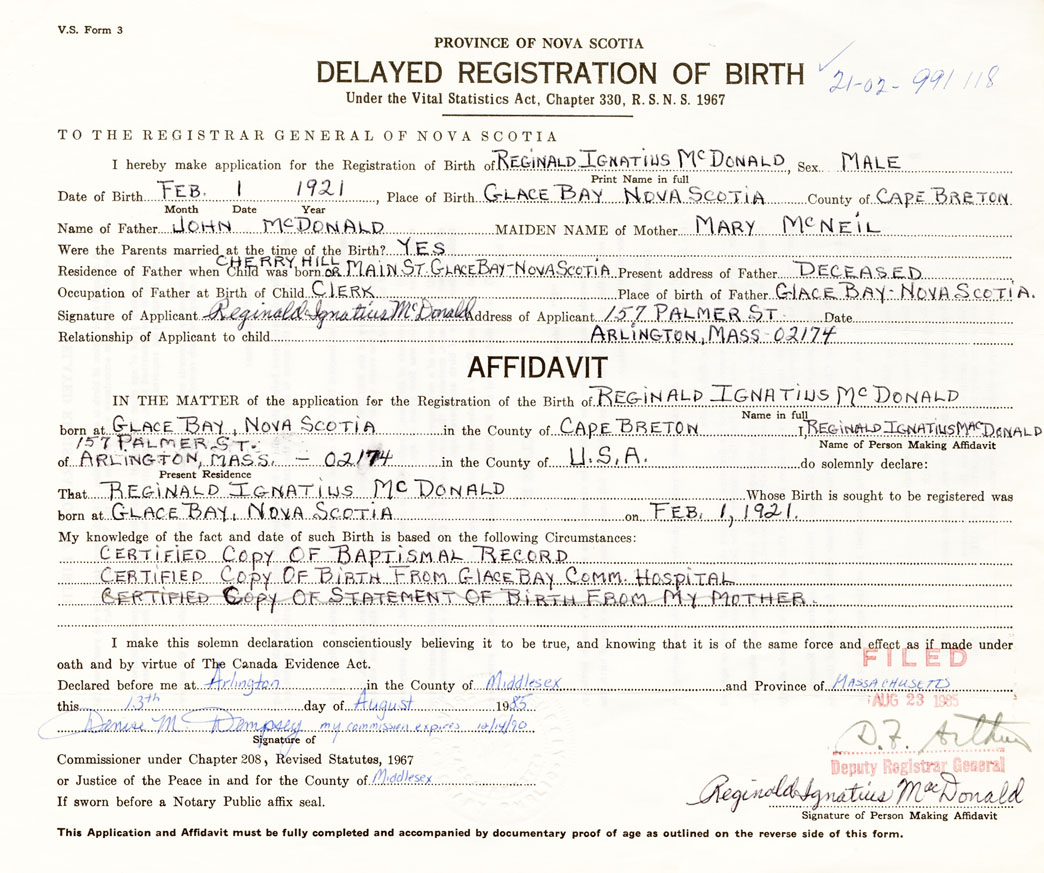 V.S. Form 3
PROVINCE OF NOVA SCOTIA
DELAYED REGISTRATION OF BIRTH
21-02- 991118
Under the Vital Statistics Act, Chapter 330, R.S.N.S. 1967
TO THE REGISTRAR GENERAL OF NOVA SCOTIA
I hereby make application for the Registration of Birth of REGINALD IGNATIUS McDONALD, Sex MALE
Print Name in full
Date of Birth FEB. 1 1921, Place of Birth GLACE BAY NOVA SCOTIA County of CAPE BRETON
Month Date Year
Name of Father JOHN McDONALD MAIDEN NAME of Mother MARY McNEIL
Were the Parents married at the time of the Birth? YES
CHERRY HILL
Residence of Father when Child was born OR MAIN ST. GLACE BAY-NOVA SCOTIA Present address of Father DECEASED
Occupation of Father at Birth of Child CLERK Place of birth of Father GLACE BAY-NOVA SCOTIA.
Signature of Applicant Reginald Ignatius McDonald Address of Applicant 157 PALMER ST. Date
Relationship of Applicant to child ARLINGTON, MASS-02174
AFFIDAVIT
IN THE MATTER of the application for the Registration of the Birth of REGINALD IGNATIUS McDONALD
Name in full
born at GLACE BAY, NOVA SCOTIA in the County of CAPE BRETON I, REGINALD IGNATIUS MACDONALD
157 PALMER ST. Name of Person Making Affidavit
of ARLINGTON, MASS. - 02174 in the County of U.S.A. do solemnly declare:
Present Residence
That REGINALD IGNATIUS McDONALD Whose Birth is sought to be registered was
born at GLACE BAY, NOVA SCOTIA on FEB. 1, 1921.
My knowledge of the fact and date of such Birth is based on the following Circumstances:
CERTIFIED COPY OF BAPTISMAL RECORD
CERTIFIED COPY OF BIRTH FROM GLACE BAY COMM. HOSPITAL
CERTIFIED COPY OF STATEMENT OF BIRTH FROM MY MOTHER.
I make this solemn declaration conscientiously believing it to be true, and knowing that it is of the same force and effect as if made under
oath and by virtue of The Canada Evidence Act.
FILED
Declared before me at Arlington in the County of Middlesex and Province of MASSACHUSETTS
this 13th day of August 1985
AUG 23 1985
Denise M. Dempsey my commission expires 12/14/90
Signature of
D.F. Arthur
Commissioner under Chapter 208, Revised Statutes, 1967
Deputy Registrar General
or Justice of the Peace in and for the County of Middlesex
Reginald Ignatius MacDonald
If sworn before a Notary Public affix seal.
Signature of Person Making Affidavit
This Application and Affidavit must be fully completed and accompanied by documentary proof of age as outlined on the reverse side of this form.